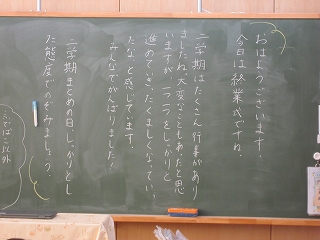 おはようございます!
今日は終業式ですね。
二学期はたくさん行事があり
ましたね。大変なこともあったと思
いますが、一つ一つをしっかりと
進めていき、たくましくなってい
たなと感じています。
みんなでがんばりました。
二学期まとめの日、しっかりとし
た態度でのぞみましょう。
ふでばこ以外